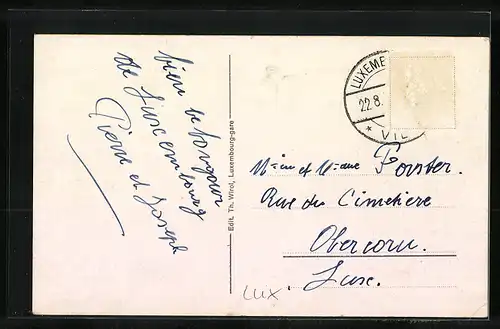 bien le bonjour
de Luxembourg
Pierre et Joseph
Edit. Th. Wirol, Luxembourg-gare
LUXEME
22.8.
* VIL
Mr et Mme Forster.
Rue du Cimetière
Obercorn.
Luxe.
LUX.